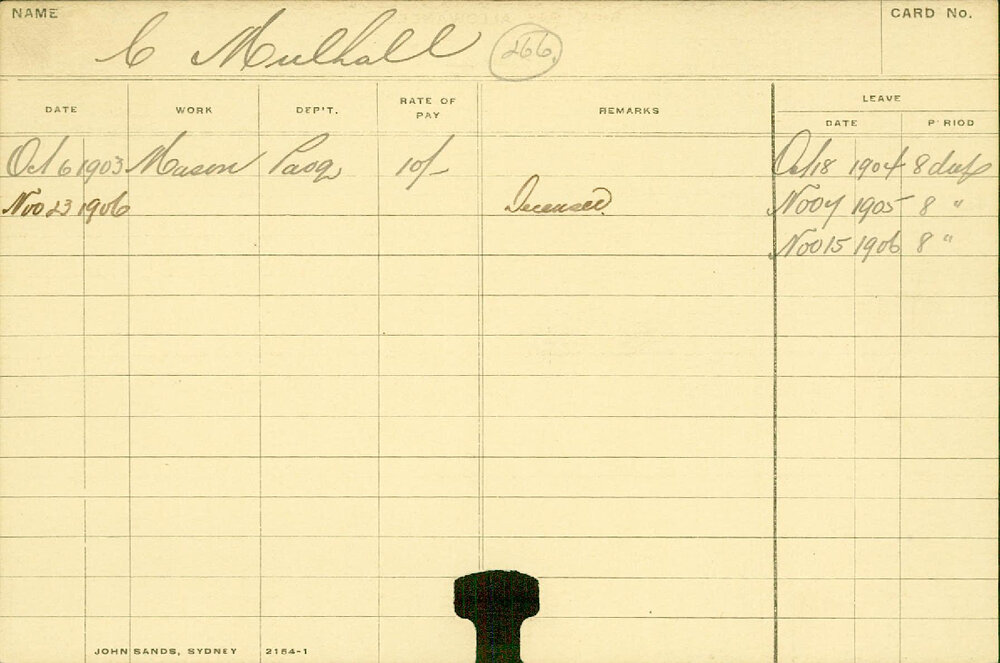 NAME
CARD No.
C Mulhall 266
DATE WORK DEP'T. RATE OF PAY REMARKS LEAVE
DATE P RIOD
Oct 6 1903 Mason 10/- Oct 18 1904 8 days
Nov 23 1906 Deceased Nov 7 1905 8 "
Nov 15 1906 8 "
JOHN SANDS, SYDNEY 2154-1